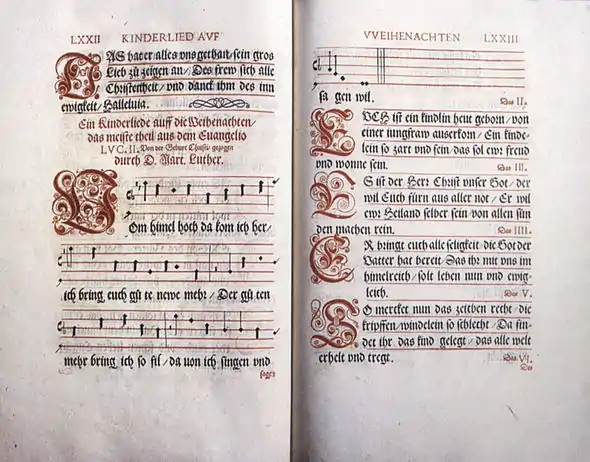 LXXII KINDERLIED AVF
DAS hat er alles vns gethan / sein gros
Lieb zů zeigen an / Des frew sich alle
Christenheit / vnd danck ihm des inn
ewigkeit / Halleluia.
Ein Kinderliede auff die Weihenachten /
das meiste theil aus dem Euangelio
LVC. II. Von der Geburt Christi / gezogen
durch D. Mart. Luther.
VOm himel hoch da kom ich her /
ich bring euch gů te newe mehr / Der gů ten
mehr bring ich so fil / da uon ich singen vnd
sagen
VVEIHENACHTEN LXXIII
sa gen wil.
Das II.
EVCH ist ein kindlin heut geborn / von
einer iungfraw auserkorn / Ein kinde-
lein so zart vnd fein / das sol ewr freud
vnd wonne sein.
Das III.
ES ist der Herr Christ vnser Got / der
wil Euch fürn aus aller not / Er wil
ewr Heiland selber sein / von allen sün
den machen rein.
Das IIII.
ER bringt euch alle seligkeit / die Got der
Vatter hat bereit / Das ihr mit vns im
himelreich / solt leben nun vnd ewig-
leich.
Das V.
SO mercket nun das zeichen recht / die
krippffen / windelein so schlecht / Da fin-
det ihr das kind gelegt / das alle welt
erhelt vnd tregt.
Das VI.
Des